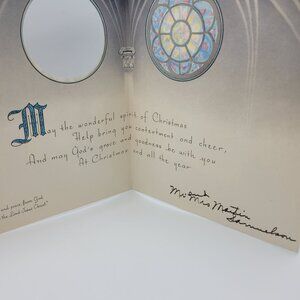 May the wonderful spirit of Christmas
Help bring you contentment and cheer,
And may God's grace and goodness be with you
At Christmas and all the year
and peace from God
the Lord Jesus Christ"
and
Mr. Mrs Martin
Samuelson